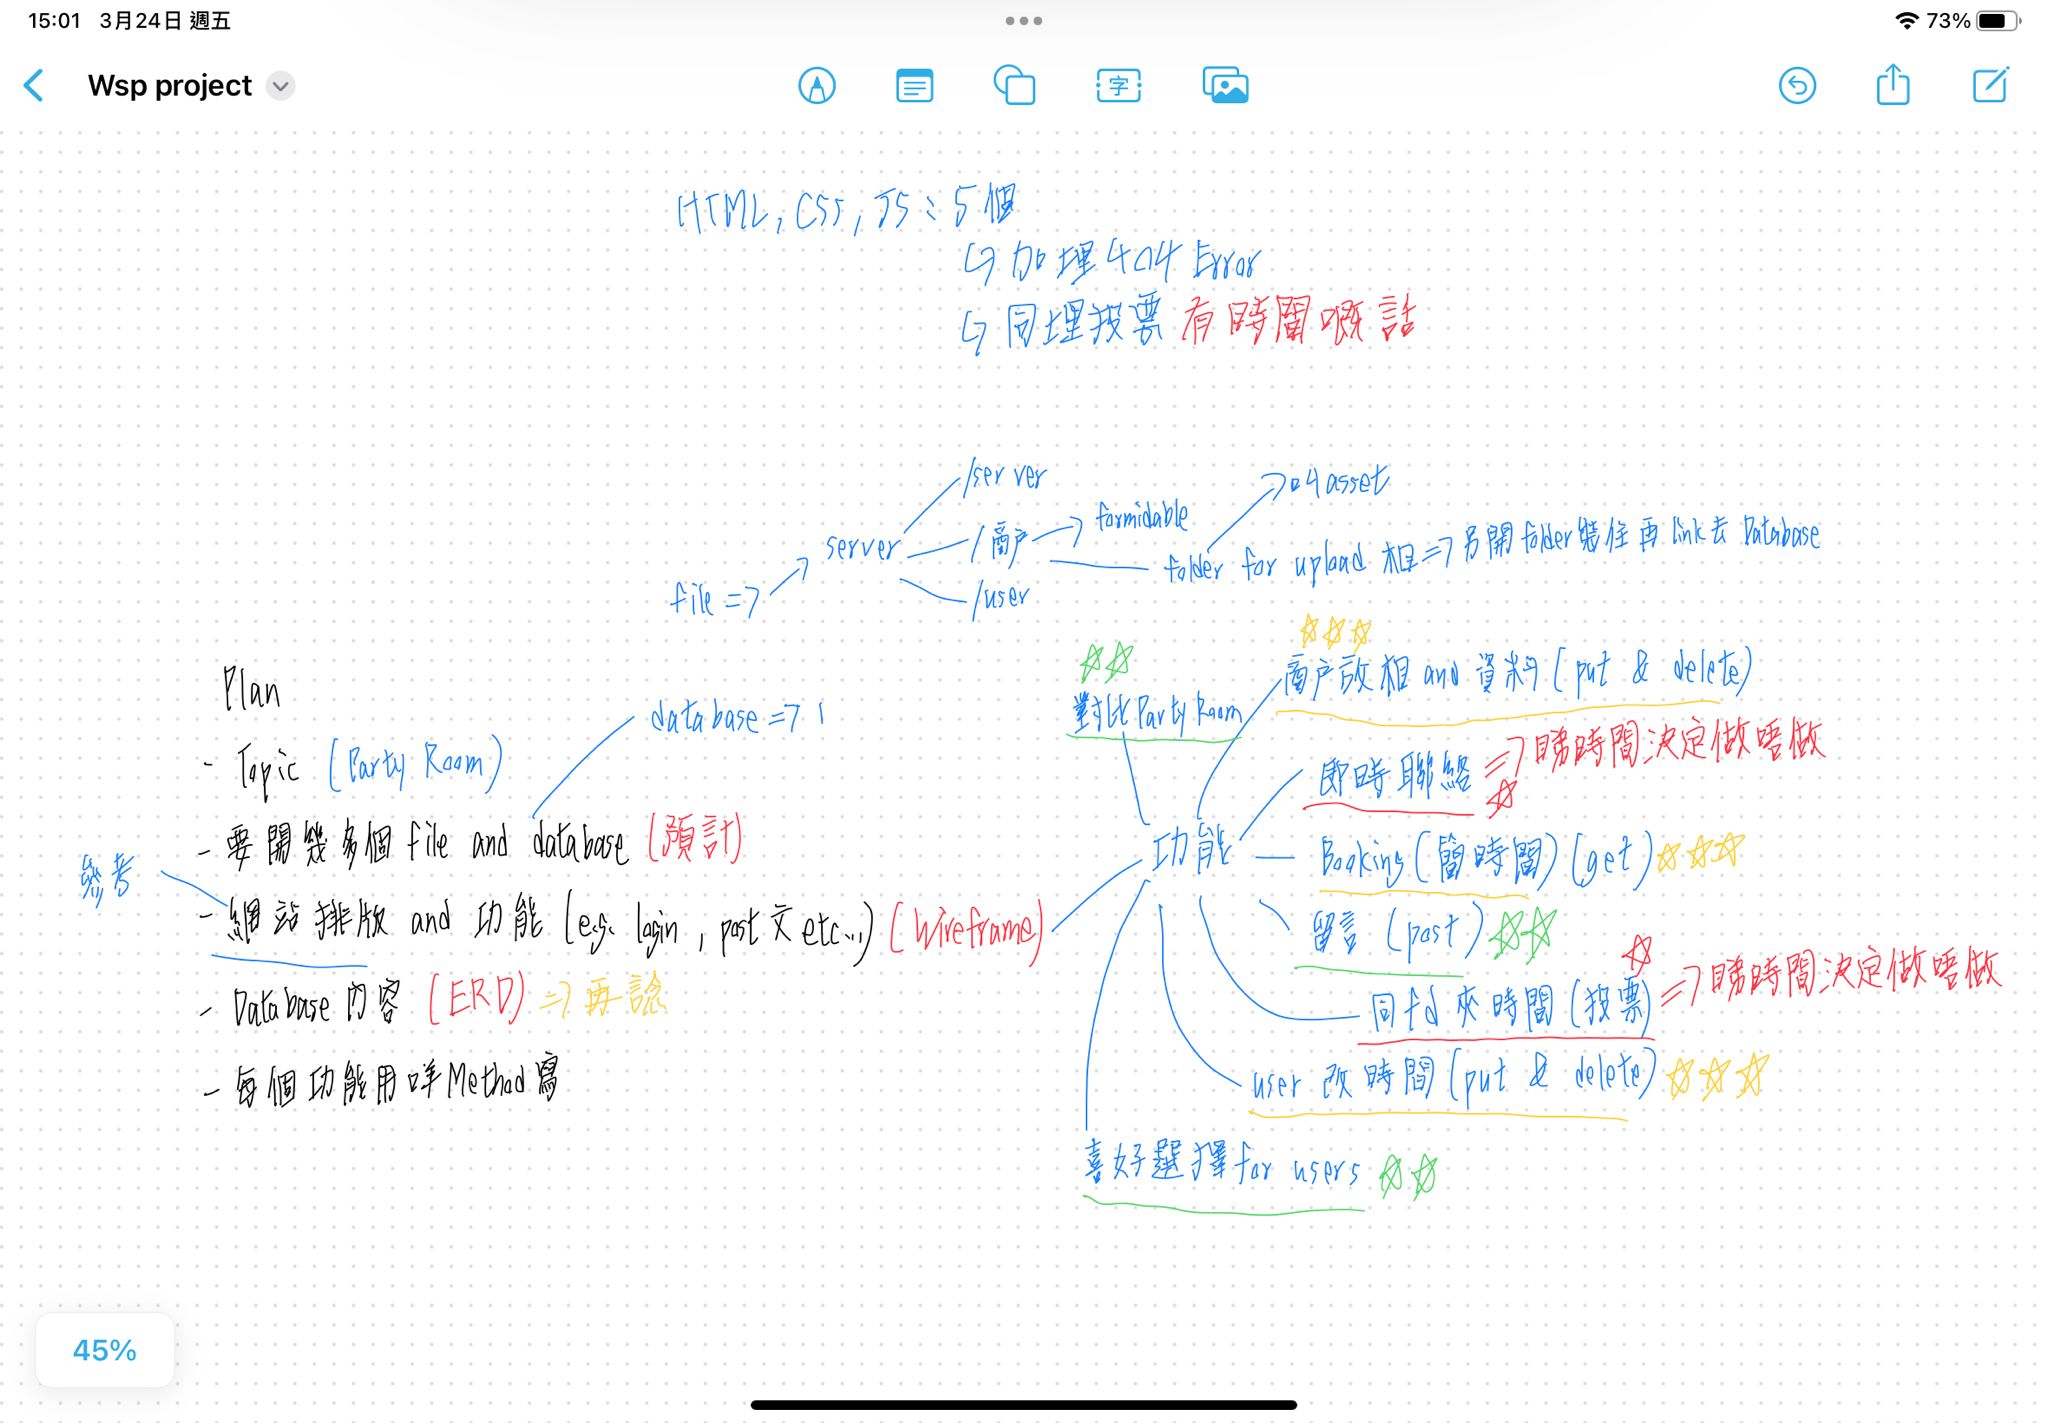 15:01 3月24日 週五
73%
Wsp project
字
HTML, CSS, JS : 5個
↳ 加埋404 Error
↳ 同埋投票 有時間嘅話
file => → server
/server
/商戶 → formidable
/user
folder for upload 相 => 另開folder裝住再link去Database
asset
Plan
- Topic (Party Room)
- 要開幾多個 file and database (預計)
database => 1
參考
- 網站排版 and 功能 (e.g. login, post文etc...) (Wireframe)
- Database內容 (ERD) => 再諗
- 每個功能用咩Method寫
功能
☆☆
對比Party Room
☆☆☆
商戶放相 and 資料 (put & delete)
即時聯絡 => 睇時間決定做唔做
☆
Booking (時間) (get) ☆☆☆
留言 (post) ☆☆
☆
同fd夾時間 (投票) => 睇時間決定做唔做
user 改時間 (put & delete) ☆☆☆
喜好選擇for users ☆☆
45%